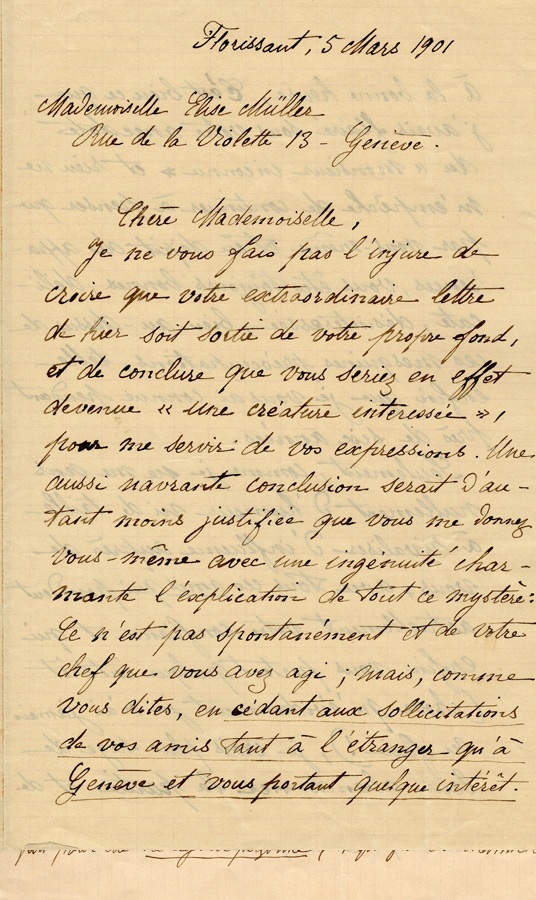 Florissant, 5 Mars 1901
Mademoiselle Elise Müller
Rue de la Violette 13 - Genève.
Chère Mademoiselle,
Je ne vous fais pas l'injure de
croire que votre extraordinaire lettre
de hier soit sortie de votre propre fond,
et de conclure que vous seriez en effet
devenue « une créature intéressée »,
pour me servir de vos expressions. Une
aussi navrante conclusion serait d'au-
tant moins justifiée que vous me donnez
vous-même avec une ingénuité char-
mante l'explication de tout ce mystère:
Ce n'est pas spontanément et de votre
chef que vous avez agi ; mais, comme
vous dites, en cédant aux sollicitations
de vos amis tant à l'étranger qu'à
Genève et vous portant quelque intérêt.